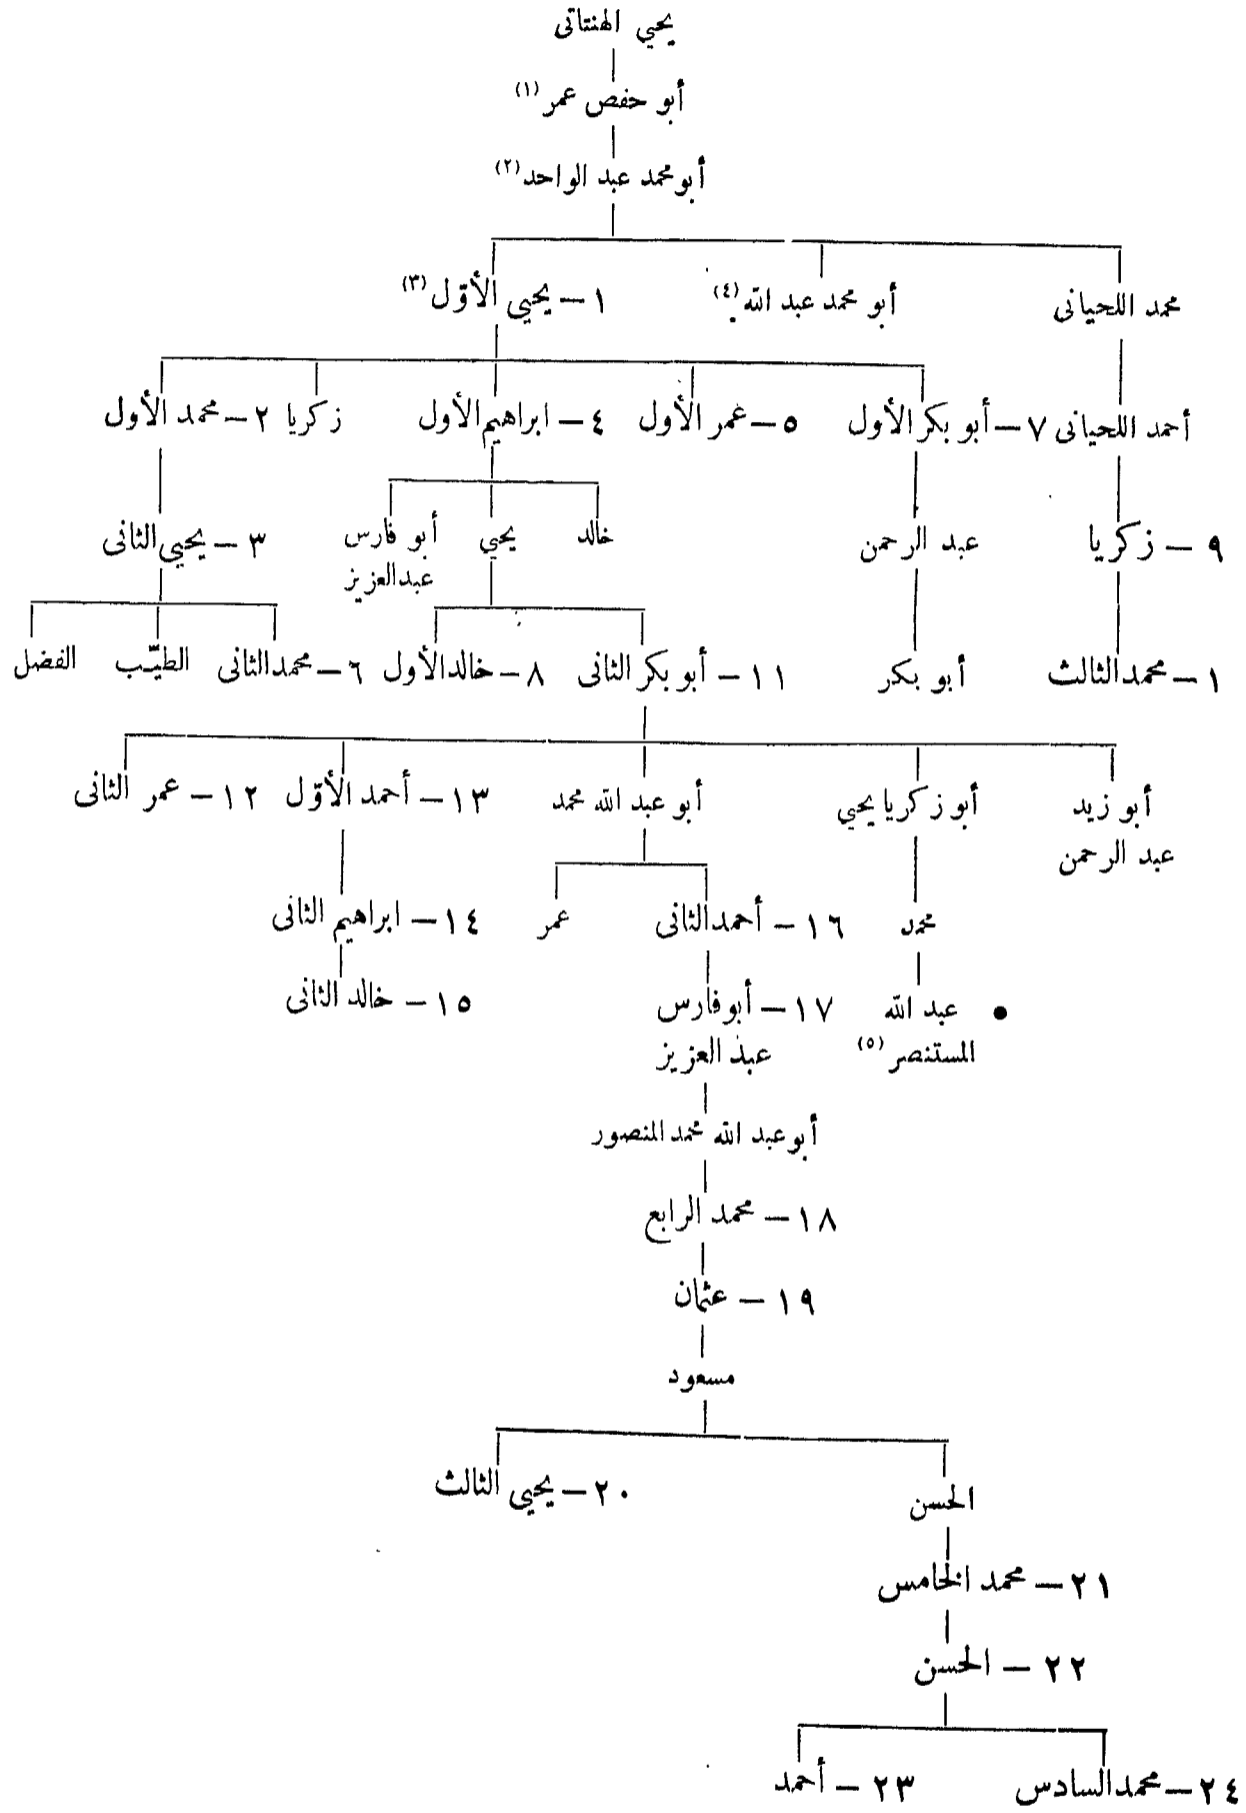 يحيي الهنتاتى
أبو حفص عمر (١)
أبو محمد عبد الواحد (٢)
محمد اللحيانى
أبو محمد عبد الله (٤)
١ — يحيي الأوّل (٣)
أحمد اللحيانى
٧ — أبو بكر الأول
٥ — عمر الأول
٤ — ابراهيم الأول
زكريا
٢ — محمد الأول
٩ — زكريا
عبد الرحمن
خالد
يحيي
أبو فارس
عبد العزيز
٣ — يحيي الثانى
١ — محمد الثالث
أبو بكر
١١ — أبو بكر الثانى
٨ — خالد الأول
٦ — محمد الثانى
الطيّب
الفضل
أبو زيد
عبد الرحمن
أبو زكريا يحيي
أبو عبد الله محمد
١٣ — أحمد الأوّل
١٢ — عمر الثانى
محمد
١٦ — أحمد الثانى
عمر
١٤ — ابراهيم الثانى
• عبد الله
المستنصر (٥)
١٧ — أبو فارس
عبد العزيز
١٥ — خالد الثانى
أبو عبد الله محمد المنصور
١٨ — محمد الرابع
١٩ — عثمان
مسعود
الحسن
٢٠ — يحيي الثالث
٢١ — محمد الخامس
٢٢ — الحسن
٢٤ — محمد السادس
٢٣ — أحمد